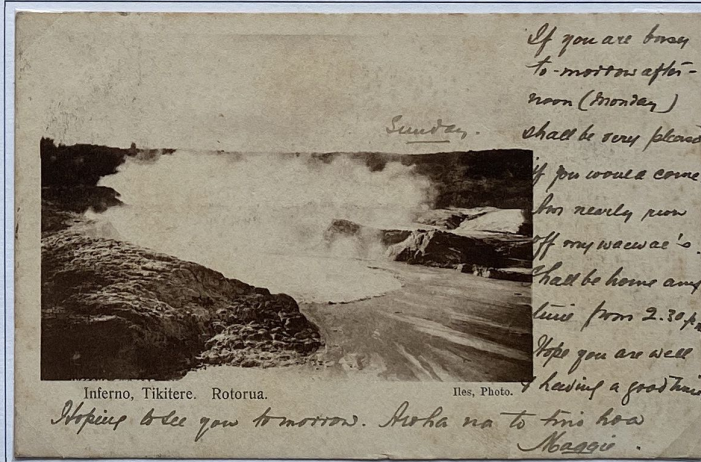 Sunday.
If you are busy
to-morrow after-
noon (Monday)
shall be very pleased
if you would come
nearly run
off my waewae's.
Shall be home any
time from 2.30 p.m
Hope you are well
& having a good time
Inferno, Tikitere. Rotorua.
Iles, Photo.
Hoping to see you tomorrow. Aroha na to tino hoa
Maggie.